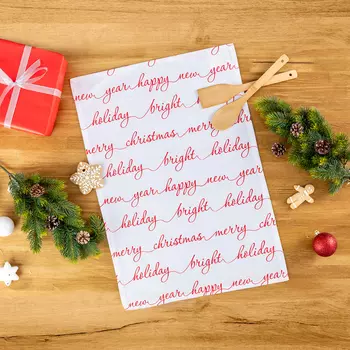 new year happy new year
holiday bright holiday
merry christmas merry
holiday bright holiday
new year happy new year
holiday bright holiday
merry christmas merry chr
holiday bright holiday
new year happy new